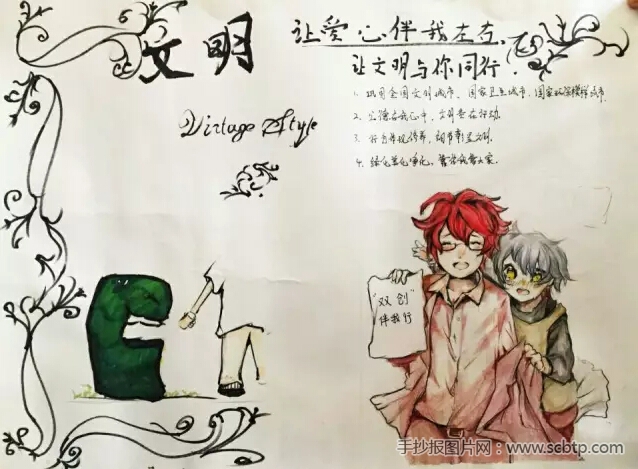 文明
让爱心伴我左右,
让文明与你同行.
Vintage Style
1. 巩固全国文明城市、国家卫生城市、国家环保模范城市.
2. 公德在我心中,文明在行动.
3. 修养,细节彰显文明.
4. 绿化美化净化、靠你我靠大家.
"双创"
伴我行
手抄报图片网:www.scbtp.com